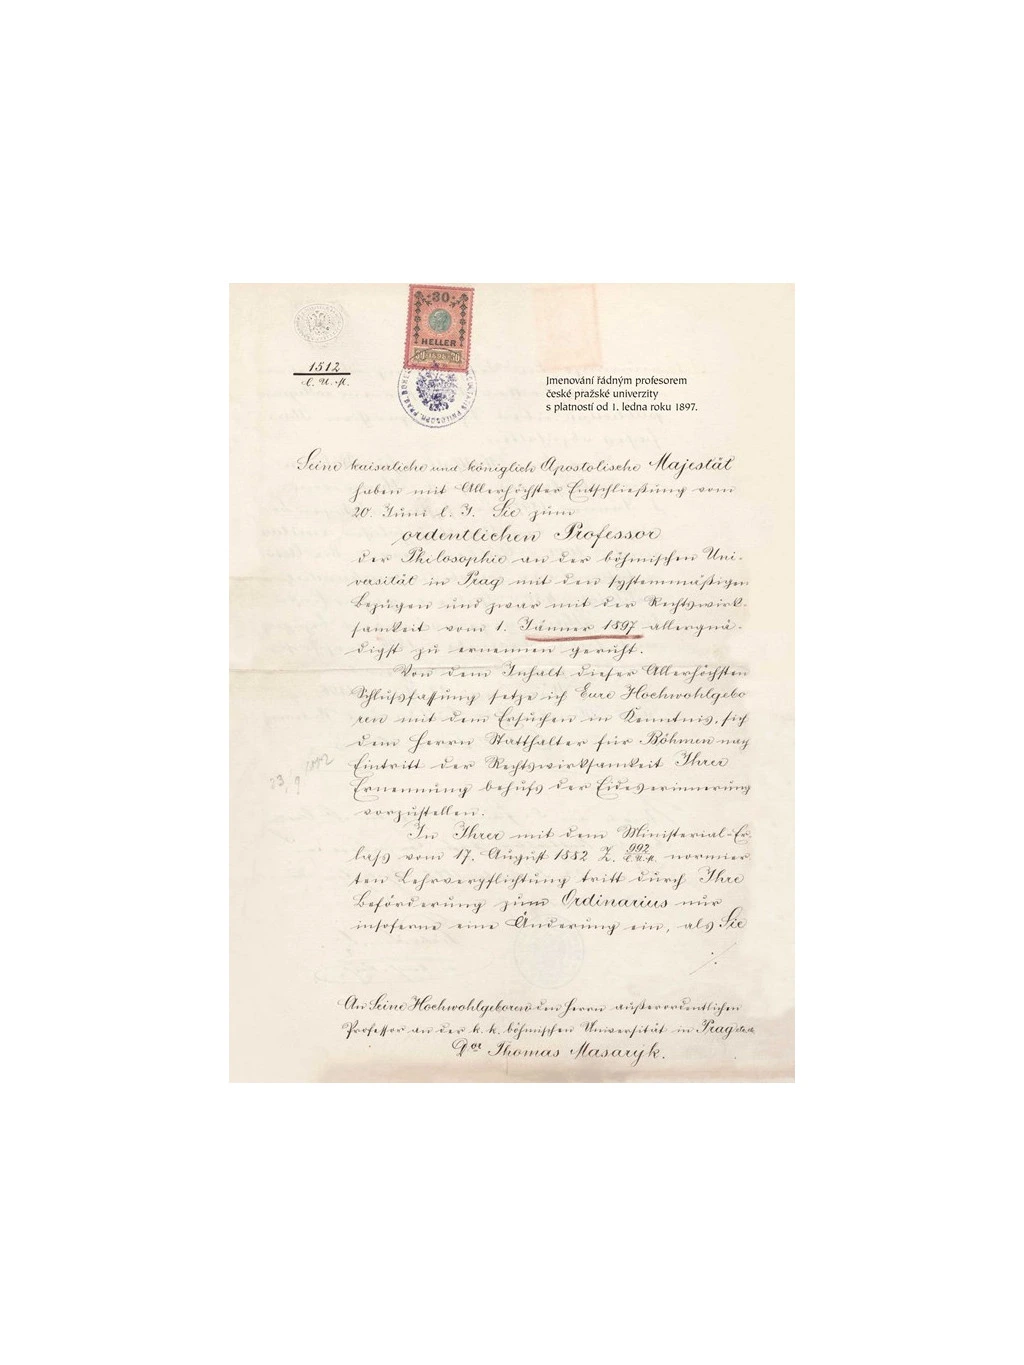 30
HELLER
1898
1512
C. U. M.
Jmenování řádným profesorem
české pražské univerzity
s platností od 1. ledna roku 1897.
Seine kaiserliche und königlich Apostolische Majestät
haben mit Allerhöchster Entschließung vom
20. Juni l. J. Sie zum
ordentlichen Professor
der Philosophie an der böhmischen Uni-
versität in Prag mit den systemmäßigen
Bezügen und zwar mit der Rechtswirk-
samkeit vom 1. Jänner 1897 allergnä-
digst zu ernennen geruht.
Von dem Inhalt dieser Allerhöchsten
Schlußfassung setze ich Eure Hochwohlgebo
ren mit dem Ersuchen in Kenntnis, sich
dem Herrn Statthalter für Böhmen nach
Eintritt der Rechtswirksamkeit Ihrer
Ernennung behufs der Eideserinnerung
vorzustellen.
In Ihrer mit dem Ministerial-Er-
laß vom 17. August 1882 Z. 992 C.U.M. normier
ten Lehrverpflichtung tritt durch Ihre
Beförderung zum Ordinarius nur
insoferne eine Änderung ein, als Sie
An Seine Hochwohlgeboren den Herrn außerordentlichen
Professor an der k. k. böhmischen Universität in Prag
Dor Thomas Masaryk.